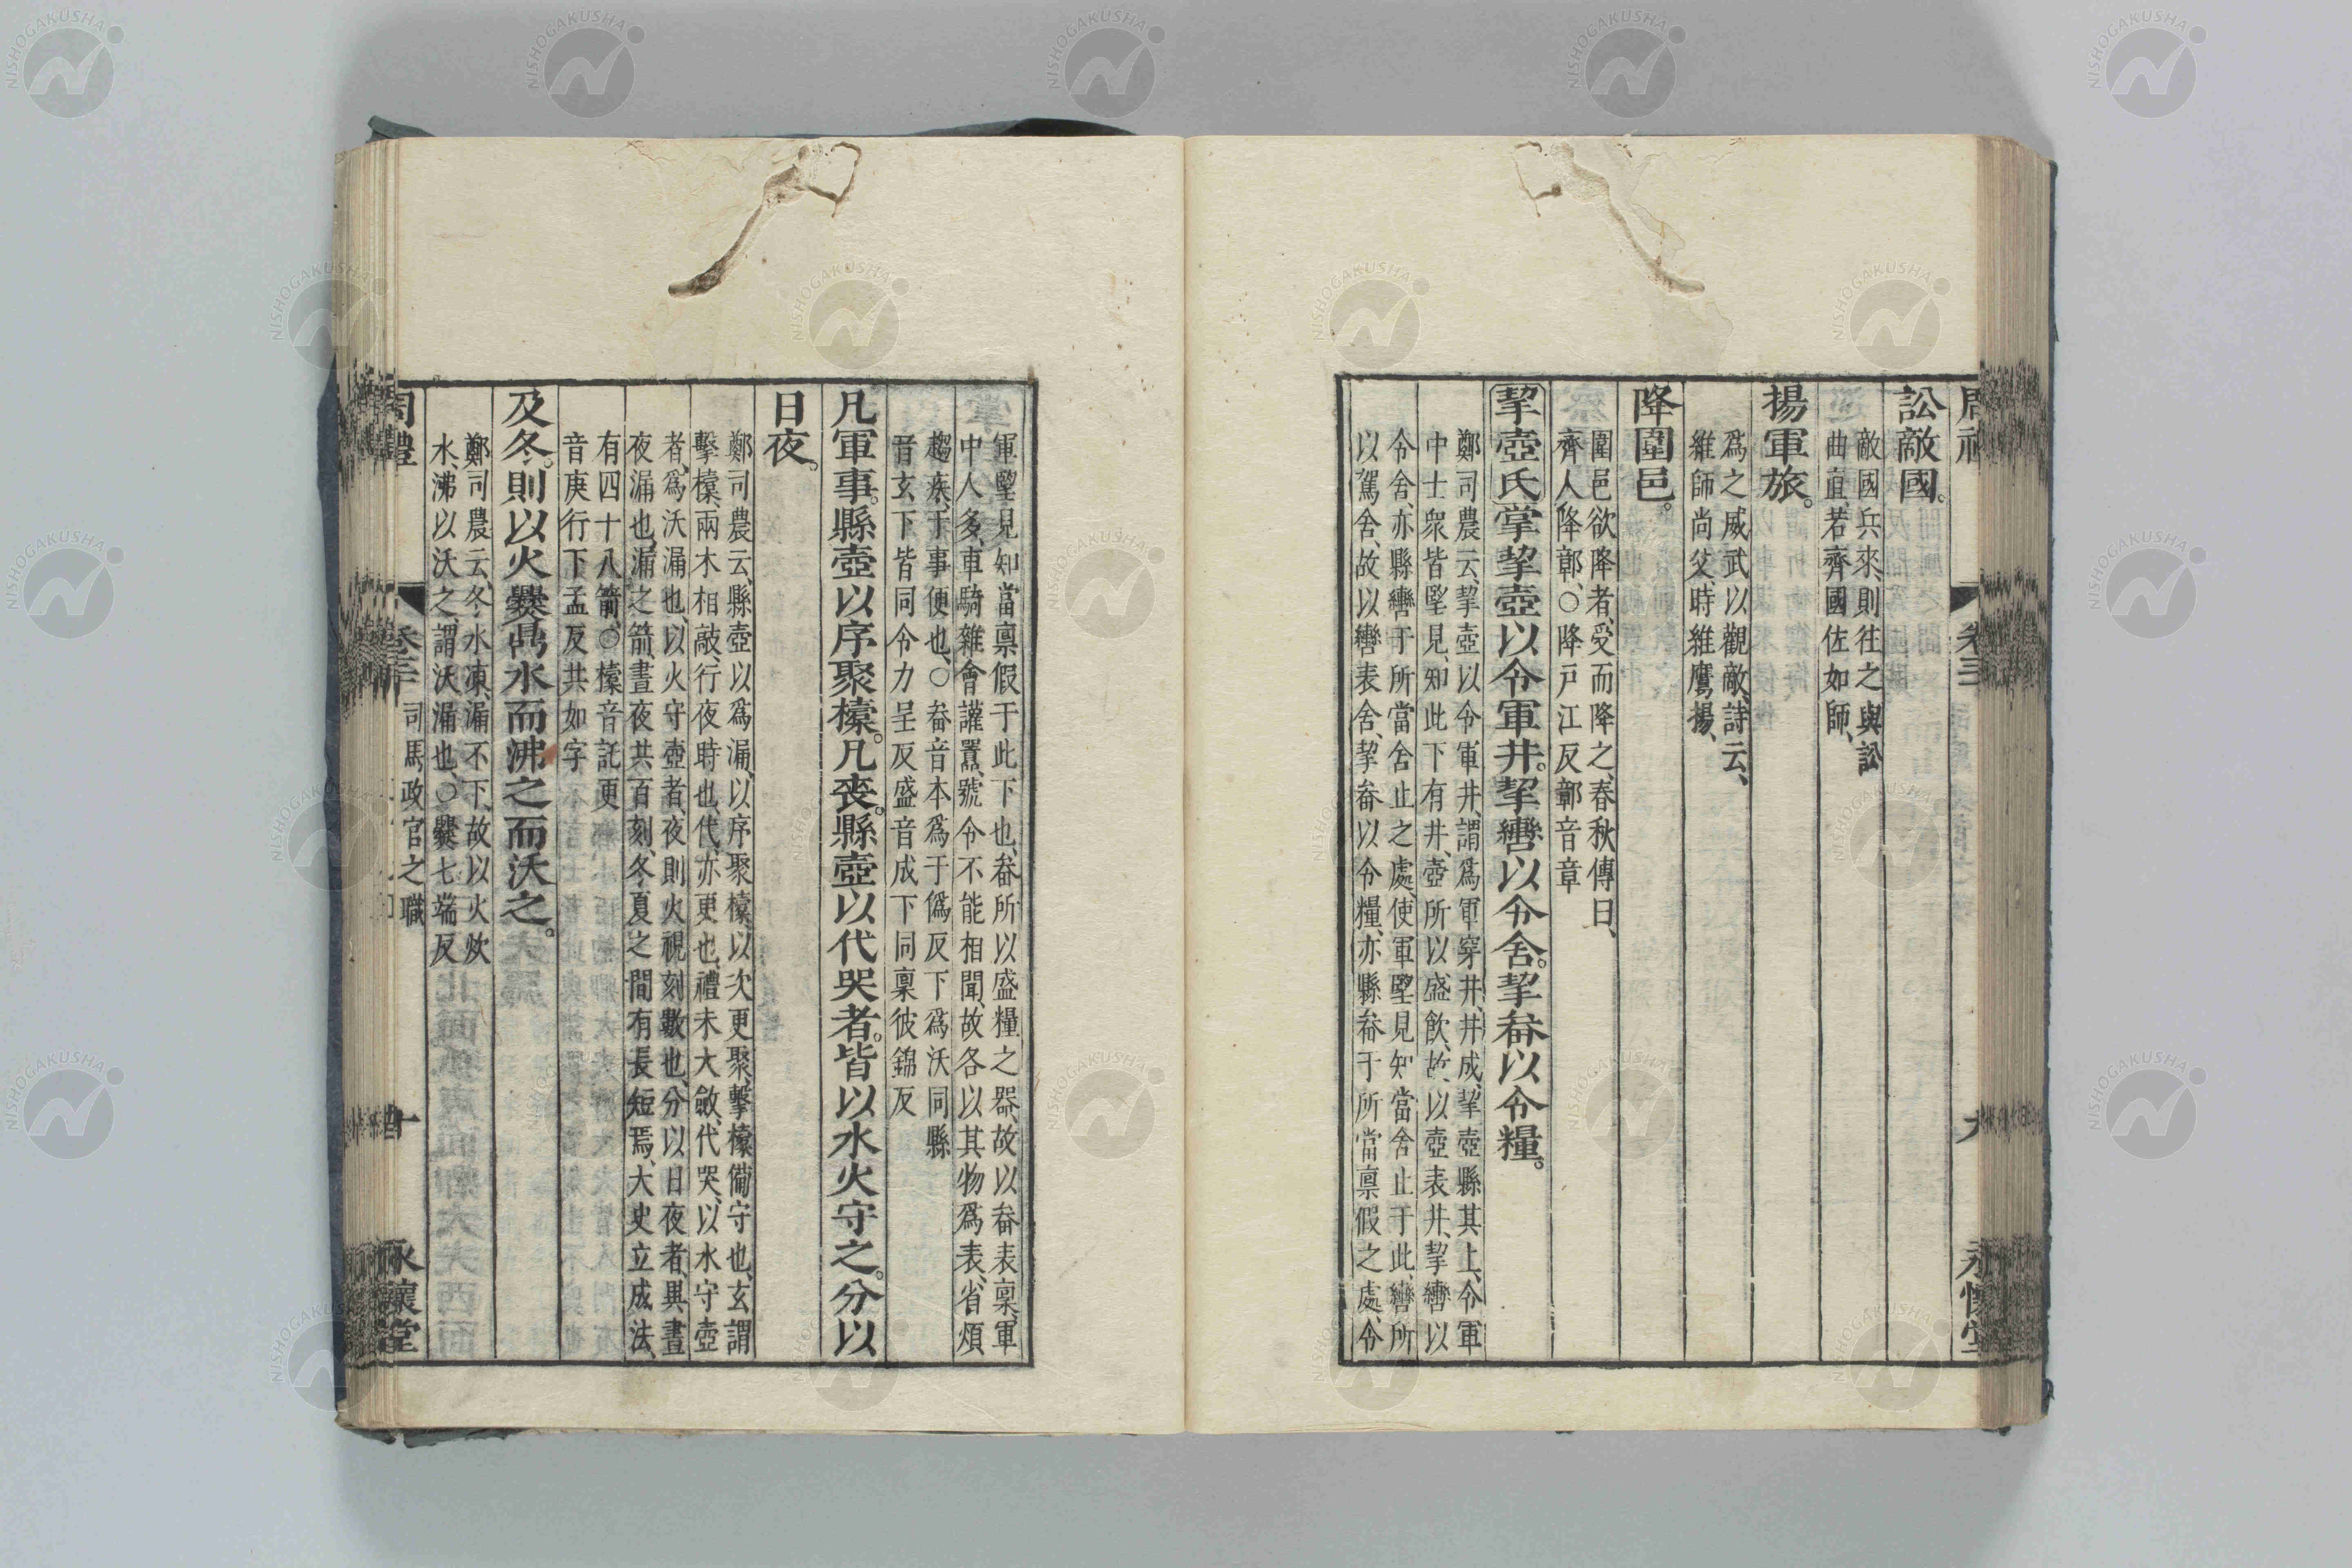 訟敵國。
敵國兵來、則往之與訟
曲直、若齊國佐如師、
揚軍旅。
爲之威武以觀敵、詩云、
維師尚父、時維鷹揚、
降圍邑。
圍邑欲降者、受而降之、春秋傳曰、
齊人降鄣、○降戸江反鄣音章
挈壺氏掌挈壺以令軍井。挈轡以令舍。挈畚以令糧。
鄭司農云、挈壺以令軍井、謂爲軍穿井、井成、挈壺縣其上、令軍
中士衆皆朢見、知此下有井、壺所以盛飲、故以壺表井、挈轡以
令舍、亦縣轡于所當舍止之處、使軍朢見知當舍止于此、轡所
以駕舍、故以轡表舍、挈畚以令糧、亦縣畚于所當稟假之處、令
軍朢見知當稟假于此下也、畚所以盛糧之器、故以畚表稟、軍
中人多、車騎雜會讙嚻、號令不能相聞、故各以其物爲表、省煩
趨疾、于事便也、○畚音本爲于僞反下爲沃同縣
音玄下皆同令力呈反盛音成下同稟彼錦反
凡軍事。縣壺以序聚㯓。凡喪。縣壺以代哭者。皆以水火守之。分以
日夜。
鄭司農云、縣壺以爲漏、以序聚㯓、以次更聚、擊㯓備守也、玄謂
擊㯓、兩木相敲、行夜時也、代、亦更也、禮未大斂、代哭、以水守壺
者、爲沃漏也、以火守壺者夜則火視刻數也、分以日夜者、異晝
夜漏也、漏之箭、晝夜共百刻、冬夏之間有長短焉、大史立成法、
有四十八箭、○㯓音託更
音庚行下孟反共如字
及冬。則以火爨鼎水而沸之而沃之。
鄭司農云、冬水凍、漏不下、故以火炊
水、沸以沃之、謂沃漏也、○爨七端反
周禮 卷三十 司馬政官之職 十 永懷堂